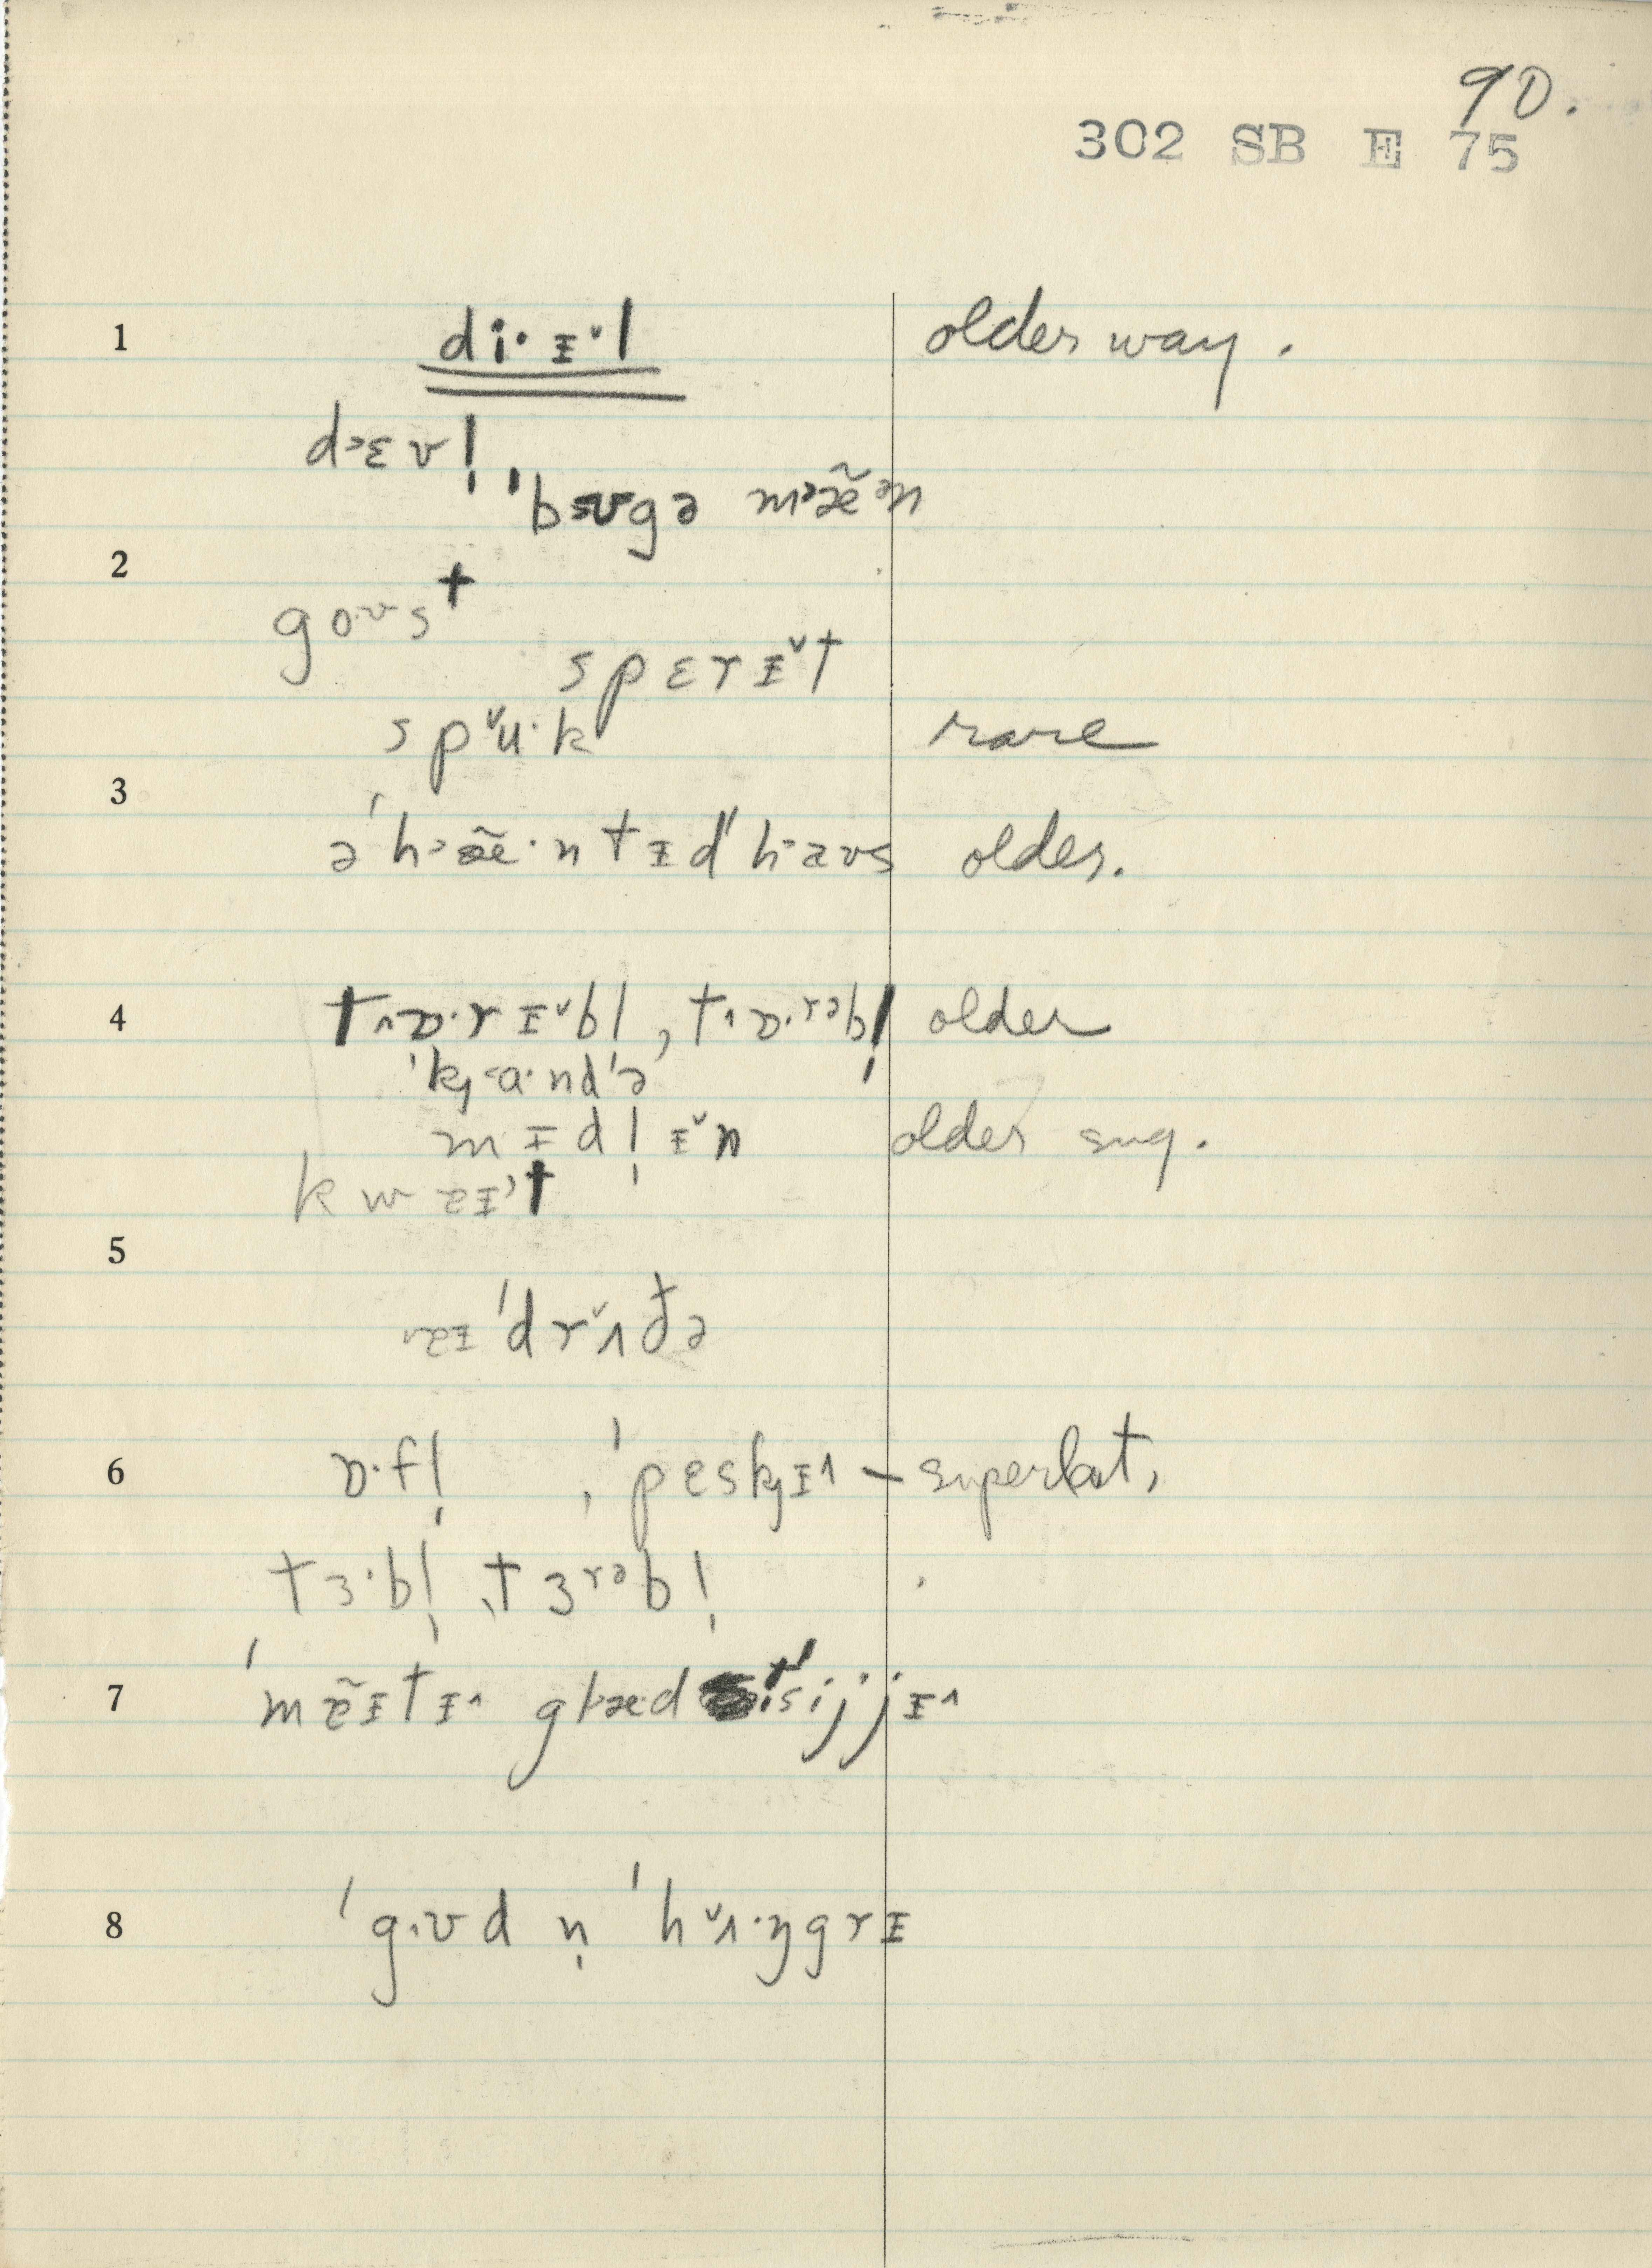 90.
302 SB E 75
1 di·ɪˇl older way.
d˃ɛvl̩
ˈbʊgə m˃æ̃ən
2
goʊst
spɛrɪˇt
spˇu·k rare
3
əˈh˃æ̃·ntɪdˈh˂aʊs older.
4 t˄ɒ·rɪˇbl, t˄ɒ·rəbl̩ older
ˈkj˂a·ndˈə
mɪdl̩ɪˇn older sug.
kweɪt
5
ʊeɪˈdrˇʌđə
6 ɒ·fl̩, ˈpeskjɪ˄ – superlat.
tɜ·bl̩, tɜrəbl̩
7 ˈmẽɪtɪ˄ glæd tsijjɪ˄
8 ˈgʊd n̩ ˈhˇʌ·ŋgrɪ